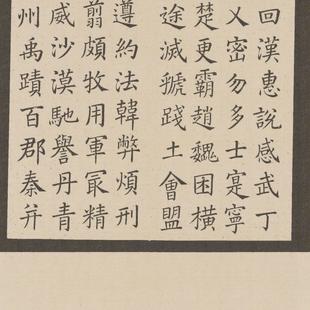 回漢惠說感武丁
乂密勿多士寔寧
楚更霸趙魏困橫
途滅虢踐土會盟
遵約法韓弊煩刑
翦頗牧用軍冣精
威沙漠馳譽丹青
州禹蹟百郡秦并